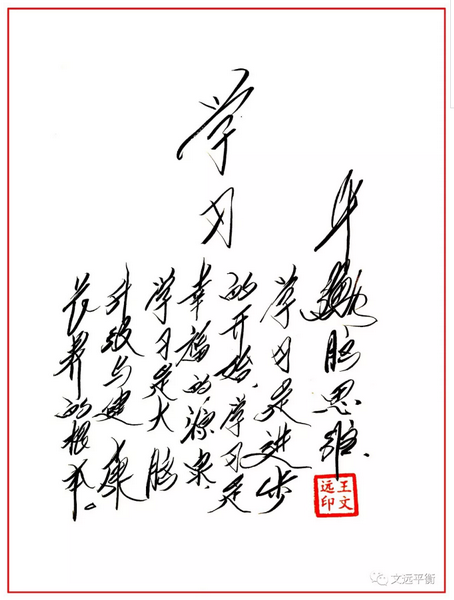 学习
脑思维、
学习是进步
的开始、学习是
幸福的源泉、
学习是大脑
升级与健康
长寿的根本。
王文远印
文远平衡